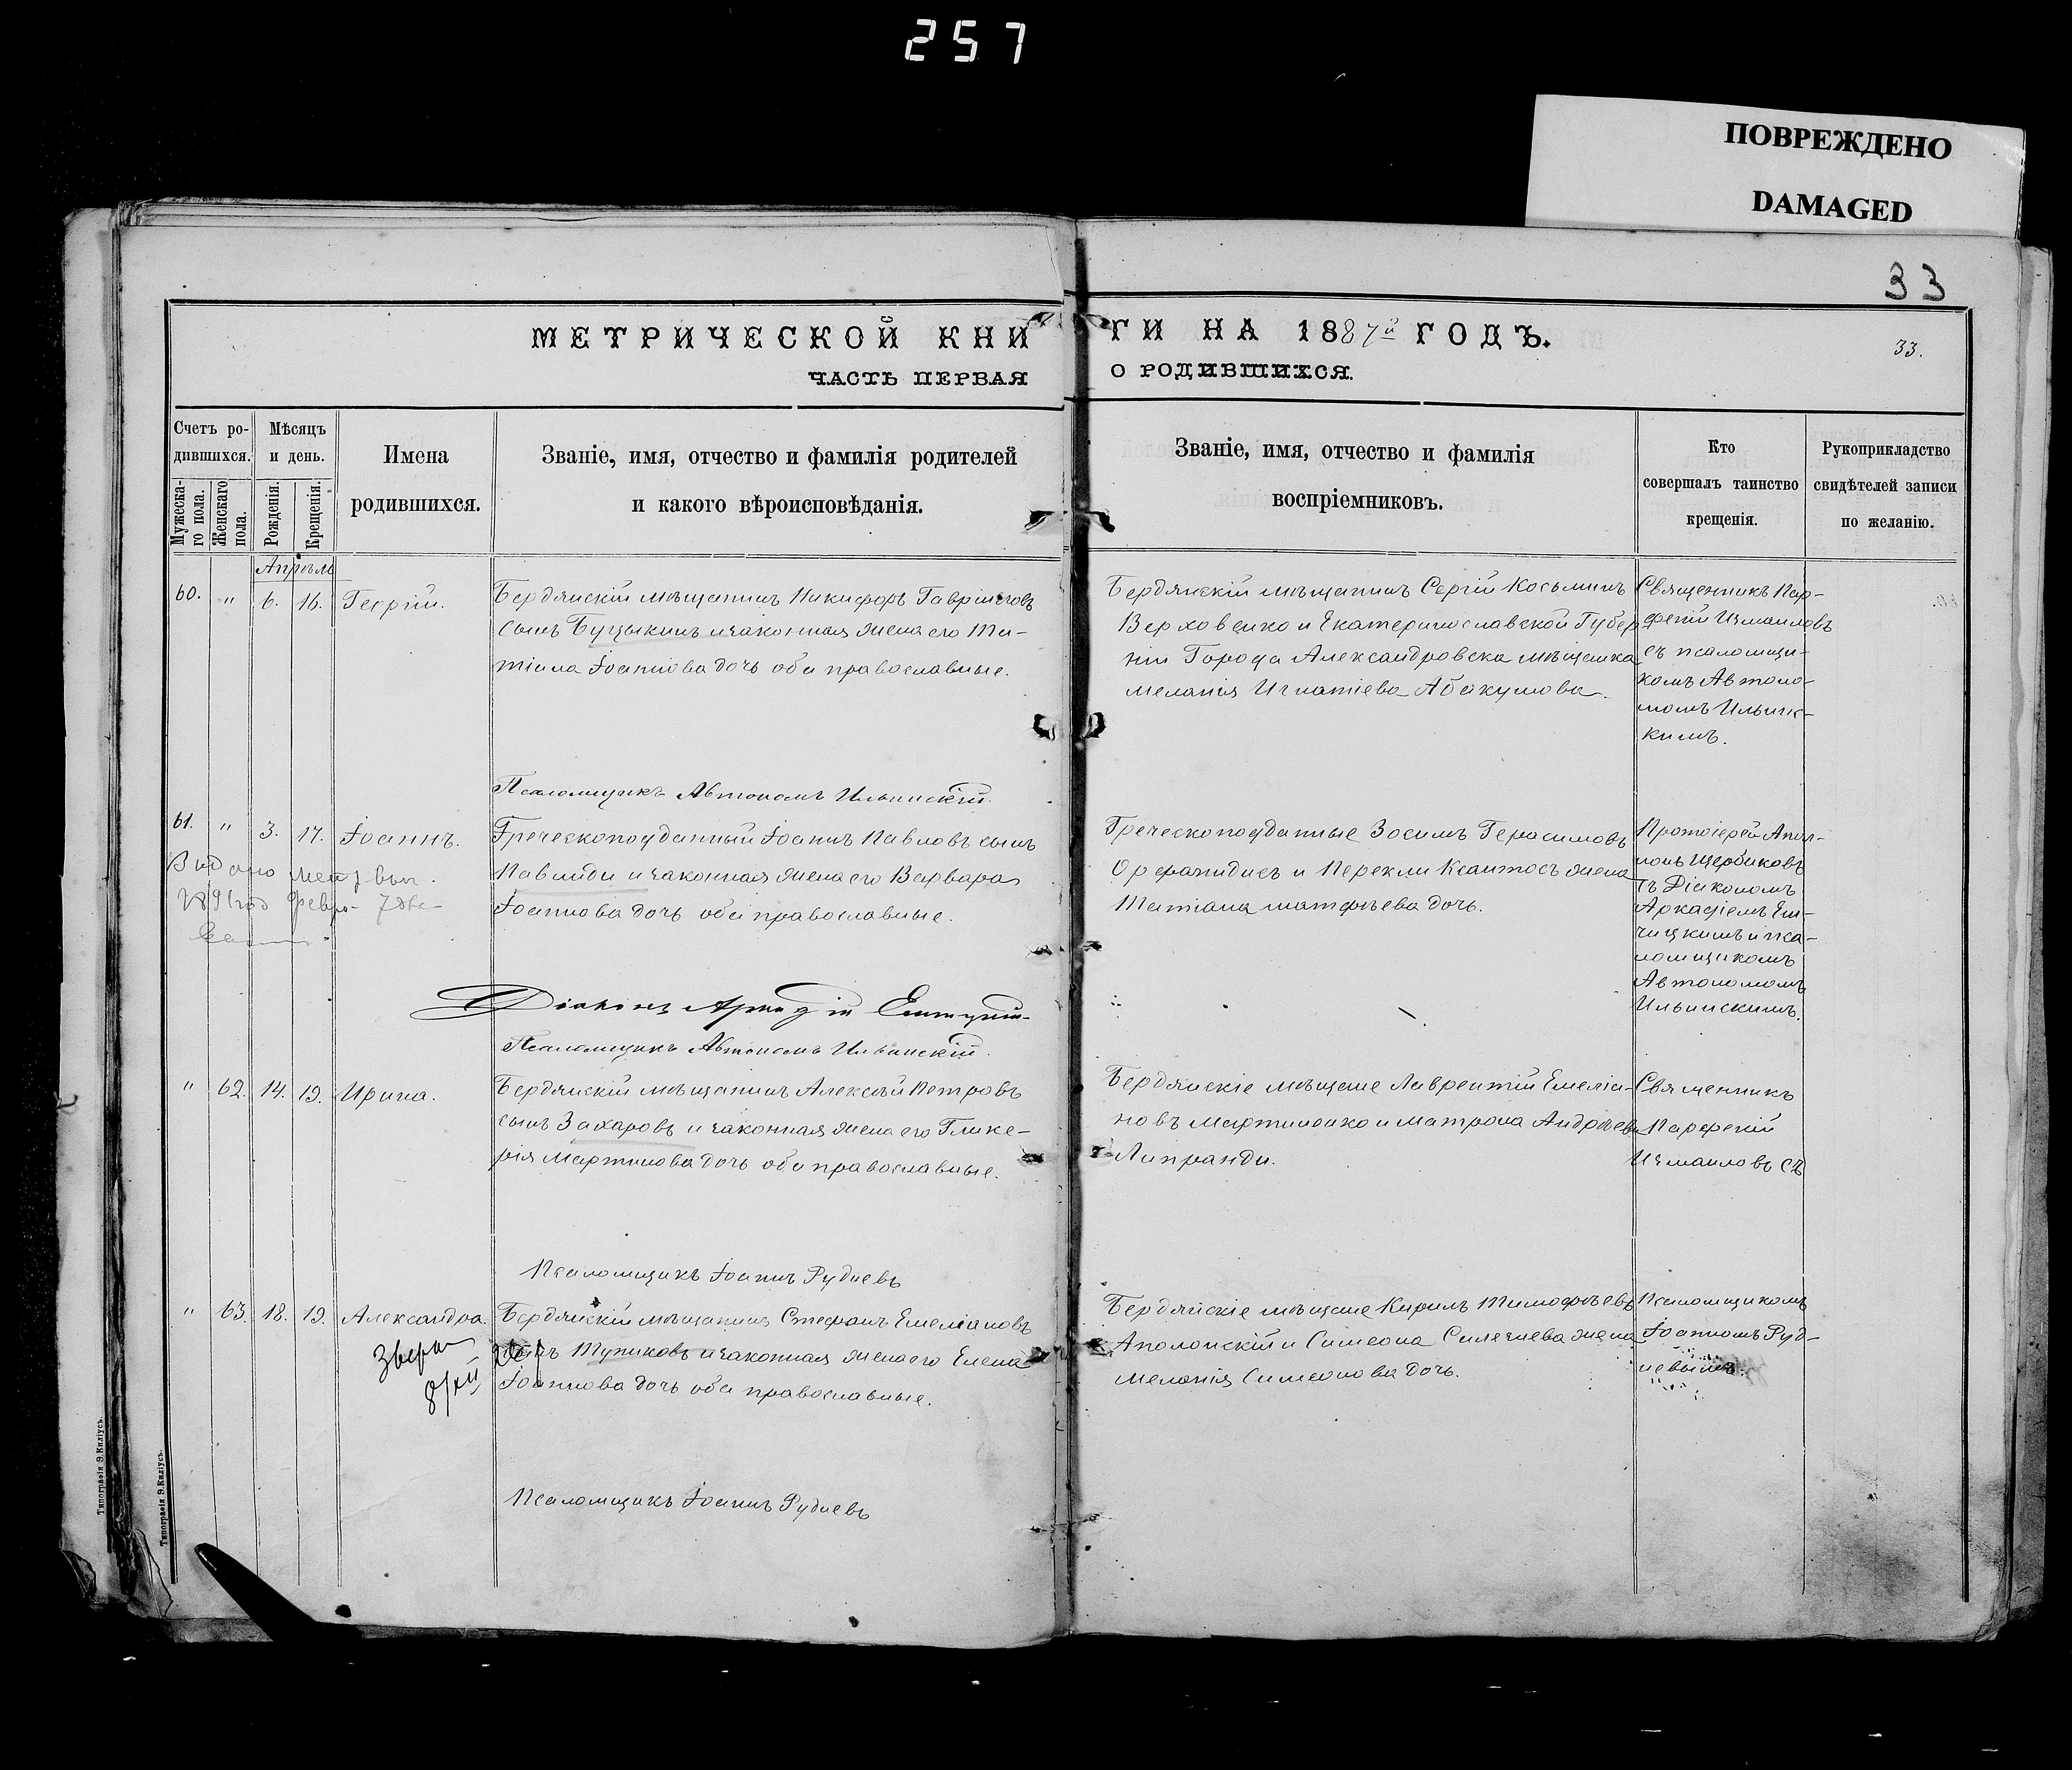 257
ПОВРЕЖДЕНО
DAMAGED
33
МЕТРИЧЕСКОЙ КНИГИ НА 1887й ГОДЪ.
33.
ЧАСТЬ ПЕРВАЯ О РОДИВШИХСЯ.
Счетъ ро-
дившихся.
Мужеска-
го пола.
Женскаго
пола.
Мѣсяцъ
и день.
Рожденія.
Крещенія.
Имена
родившихся.
Званіе, имя, отчество и фамилія родителей
и какого вѣроисповѣданія.
Званіе, имя, отчество и фамилія
воспріемниковъ.
Кто
совершалъ таинство
крещенія.
Рукоприкладство
свидѣтелей записи
по желанію.
Апрѣль
60. " 6. 16. Георгій.
Бердянскій мѣщанинъ Никифоръ Гавріиловъ
сынъ Буцыкинъ и законная жена его Та-
тіана Іоаннова дочь оба православные.
Бердянскій мѣщанинъ Сергій Косьминъ
Верховенко и Екатеринославской Губер
ніи Города Александровска мѣщанка
Меланія Игнатіева Абакумова.
Священникъ Пар-
феній Измаиловъ
съ псаломщи-
комъ Автоно-
момъ Ильинс-
кимъ.
Псаломщикъ Автономъ Ильинскій.
61. " 3. 17. Іоаннъ.
Греческоподданный Іоаннъ Павловъ сынъ
Павлиди и законная жена его Варвара
Іоаннова дочь оба православные.
Выдано
1891 год Февр. 7
Греческоподданные Зосимъ Герасимовъ
Орфанидисъ и Перекли Ксантосъ жена
Татіана Матфѣева дочь.
Протоіерей Апол-
лонъ Щербаковъ
съ Діакономъ
Аркадіемъ Ели-
чицкимъ и пса-
ломщикомъ
Автономомъ
Ильинскимъ.
Діаконъ Аркадій
Псаломщикъ Автономъ Ильинскій.
" 62. 14. 19. Ирина.
Бердянскій мѣщанинъ Алексѣй Петровъ
сынъ Захаровъ и законная жена его Глике-
рія Мартинова дочь оба православные.
Бердянскіе мѣщане Лаврентій Емеліа-
новъ Мартиненко и Матрона Андреева
Липранди.
Священникъ
Парфеній
Измаиловъ съ
Псаломщикъ Іоаннъ Рудневъ
" 63. 18. 19. Александра.
8/XII
Бердянскій мѣщанинъ Стефанъ Емеліановъ
сынъ Тупиковъ и законная жена его Елена
Іоаннова дочь оба православные.
Бердянскіе мѣщане Кирилъ Тимофѣевъ
Аполонскій и Симеона жена
Меланія Симеонова дочь.
Псаломщикомъ
Іоанномъ Руд-
невымъ.
Псаломщикъ Іоаннъ Рудневъ
Типографія Э.Киліусъ.
Типографія Э.Киліусъ.